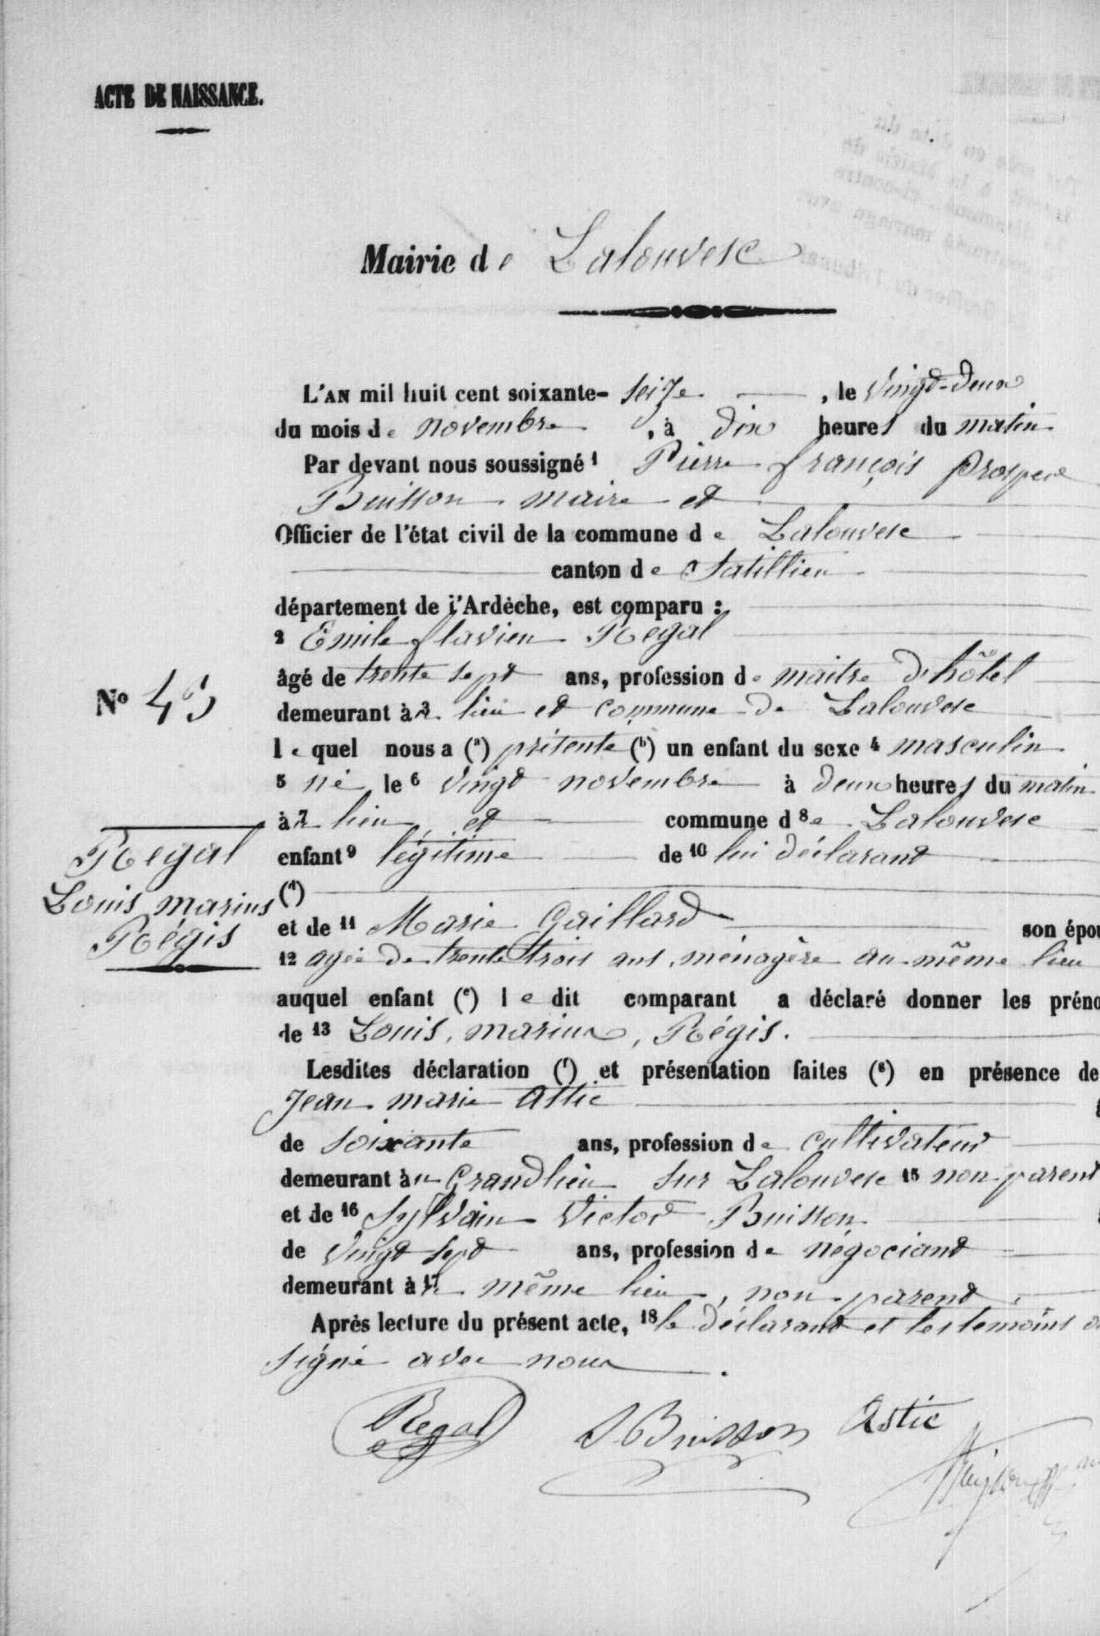 ACTE DE NAISSANCE.
Mairie de Lalouvesc
L'AN mil huit cent soixante- seize, le vingt-deux
du mois de novembre, à dix heures du matin
Par devant nous soussigné 1 Pierre françois prosper
Buisson maire et
Officier de l'état civil de la commune de Lalouvesc
canton de Satillieu
département de l'Ardèche, est comparu :
2 Emile flavien Regal
âgé de trente sept ans, profession de maitre d'hôtel
N° 45
demeurant à 3 lieu et commune de Lalouvesc
lequel nous a (a) présenté (b) un enfant du sexe 4 masculin
5 né le 6 vingt novembre à deux heures du matin
à 7 lieu et commune d 8 e Lalouvesc
Regal
Louis marius
Régis
enfant 9 légitime de 10 lui déclarant
(d)
et de 11 Marie Gaillard son épou
12 agée de trente trois ans, ménagère au même lieu
auquel enfant (e) le dit comparant a déclaré donner les préno
de 13 Louis, marius, Régis.
Lesdites déclaration (f) et présentation faites (g) en présence de
Jean marie Astic
de soixante ans, profession de cultivateur
demeurant à Grandlieu sur Lalouvesc 15 non parent
et de 16 Sylvain Victor Buisson
de vingt sept ans, profession de négociant
demeurant à 17 même lieu, non parent,
Après lecture du présent acte, 18 le déclarant et les temoins o
signé avec nous.
Regal Buisson Astic